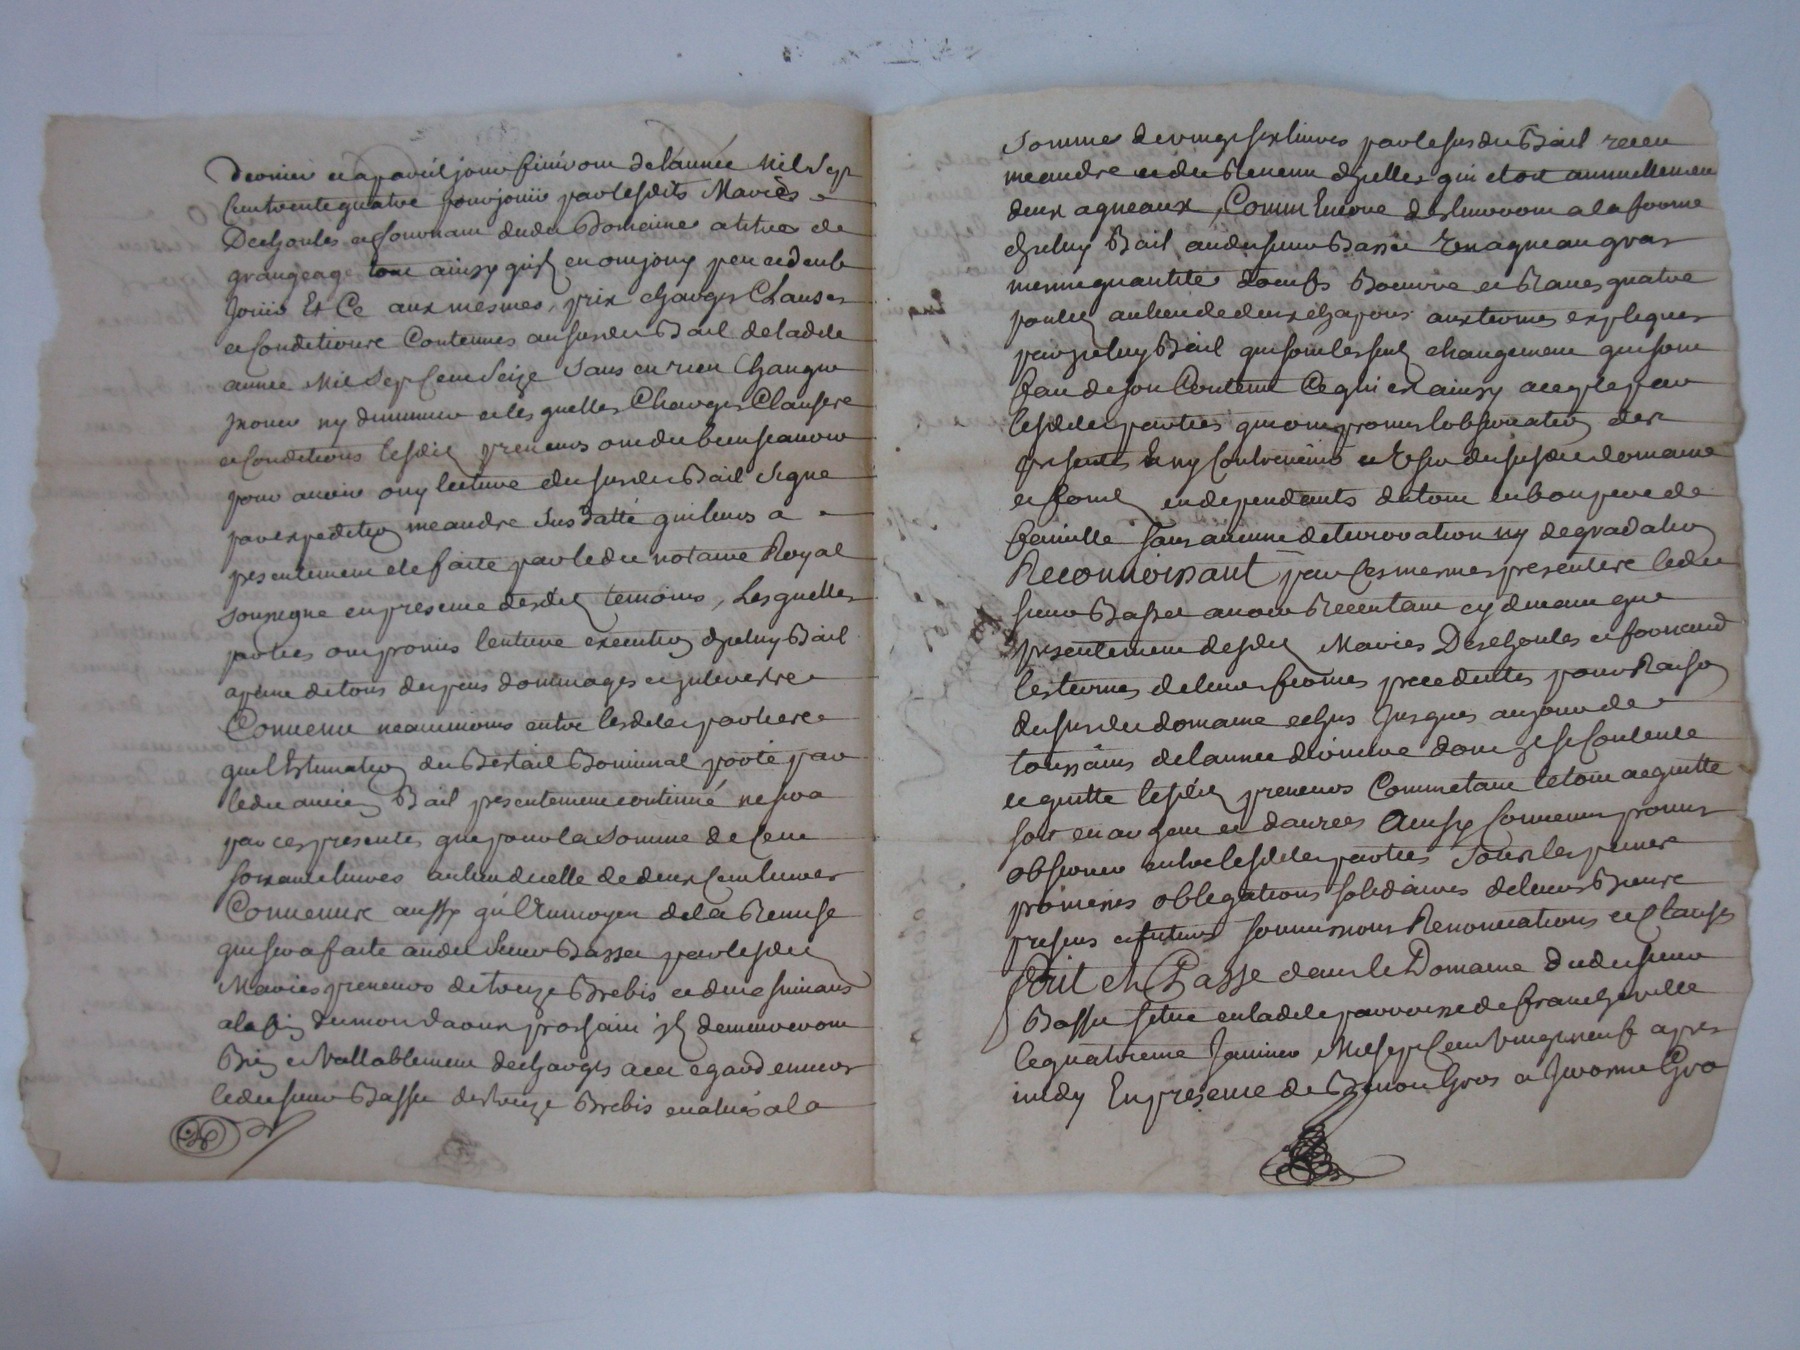 Dernier et a pareil jour finiront de l'année mil sept
cent trente quatre pour jouir par lesdits Mariés
Deschoules et fournant dudit Domaine a titre de
grangeage tout ainsy qu'ils en ont jouy peu ou deub
jouir Et Ce aux mesmes, prix charges Clauses
et Conditions Contenues au susdit Bail de ladite
année Mil Sept Cent Seize Sans en rien Changer
ny diminuer et lesquelles Charges Clauses
et Conditions lesdits preneurs ont dit bien scavoir
pour avoir ouy lecture du susdit Bail signé
par expedition meandre susdatté qui leurs a
presentement eté faite par ledit notaire Royal
soussigné en presence desdits temoins, Lesquelles
parties ont promis l'entiere execution d'iceluy Bail
a peine de tous depens dommages et interests
Convenu neanmoins entre lesdites parties
que l'Estimation du Bestail porté par
ledit ancien Bail presentement continué ne sera
par ces presentes que pour la somme de Cent
soixante livres au lieu de celle de deux Cent livres
Convenu aussy qu'au moyen de la Remise
qui sera faite audit Sieur Basset par lesdits
Mariés preneurs de treize Brebis et de
a la fin du mois d'aoust prochain ils demeureront
Bien et Vallablement dechargés avec egard envers
ledit sieur Basset de treize Brebis a la
somme de vingt six livres par le susdit Bail receu
meandre et du Revenu d'icelles qui etoit annuellement
deux agneaux, Comm' Encore dellivreront a la forme
d'iceluy Bail audit sieur Basset Un agneau gras
mesme quantité d'oeufs Beurre et Raves quatre
poulets au lieu de deux chapons aux termes expliqués
par iceluy Bail qui sont les seuls changement qui sont
fait de son Contenu Ce qui est ainsy accepté par
lesdites parties qui ont promis l'observation des
presentes n'y Contrevenir et User du susdit domaine
et fonds en dependants du tout en bon pere de
famille sans aucune deterioration ny degradation
Reconnoissant par ces mesmes presentes ledit
sieur Basset avoir Receu tant cy devant que
presentement desdits Mariés Deschoules et fournand
les termes de leurs fermes precedentes pour Raison
du susdit domaine echus jusques au jour de
toussains de l'année derniere dont il se Contente
et quitte lesdits preneurs Comme étant le tout acquitté
soit en argent et danrées Ainsy Convenu promis
observer entre lesdites parties sous les peines
promises obligations solidaires de leurs Biens
presens et futeurs soumissions Renonciations et Clauses
Fait et Passé dans le Domaine dudit sieur
Basset situé en ladite parroisse de francheville
le quatrieme Janvier Mil sept Cent vingt neuf apres
midy En presence de Benoit Gros a Jerosme Gro